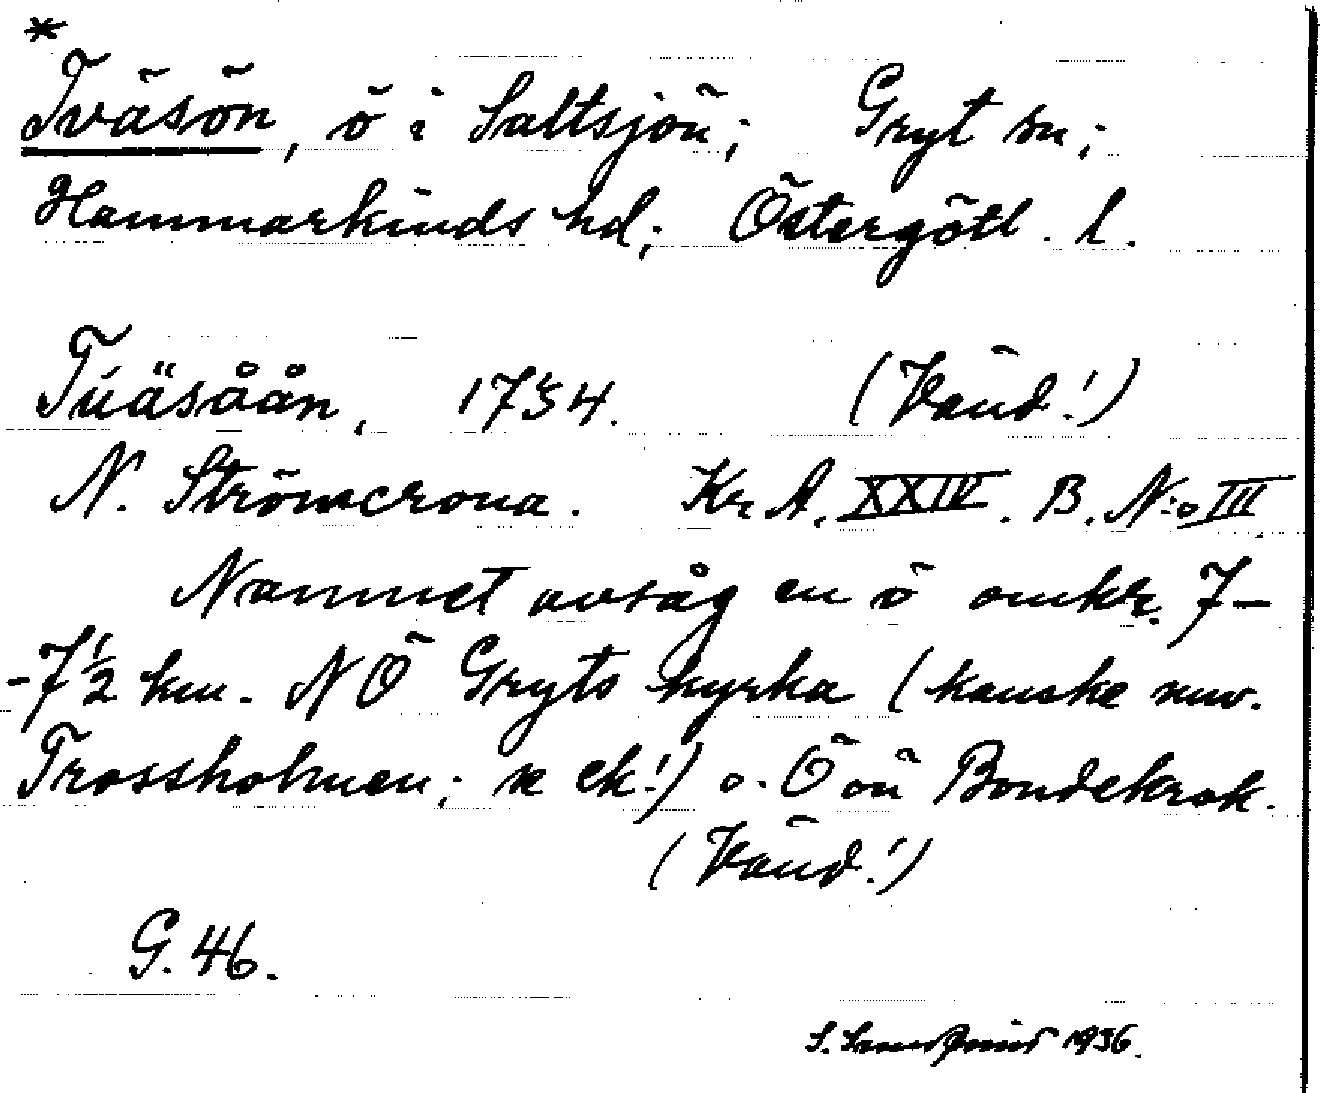 *
Tväsön, ö i Saltsjön; Gryt sn;
Hammarkinds hd; Östergötl. l.
Túäsåån, 1734. (Vänd!)
N. Strömcrona. Kr. A. XXIV. B. N:o III
Namnet avsåg en ö omkr. 7-
-7½ km. NÖ Gryts kyrka (kanske nuv.
Trossholmen; se ek!) o. Ö ön Bondekrok.
(Vänd!)
G. 46.
S. 1936.